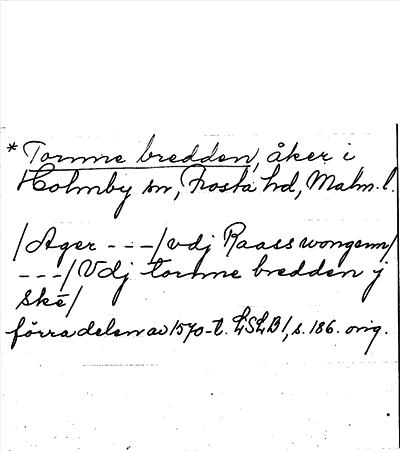 * Tomme bredden, åker i
Holmby sn, Frosta hd, Malm. l.
/Ager - - -/ vdj Raass wongenn/
- - -/ Vdj tomme bredden j
Ske/
förra delen av 1570-t. LSLB1, s. 186. orig.